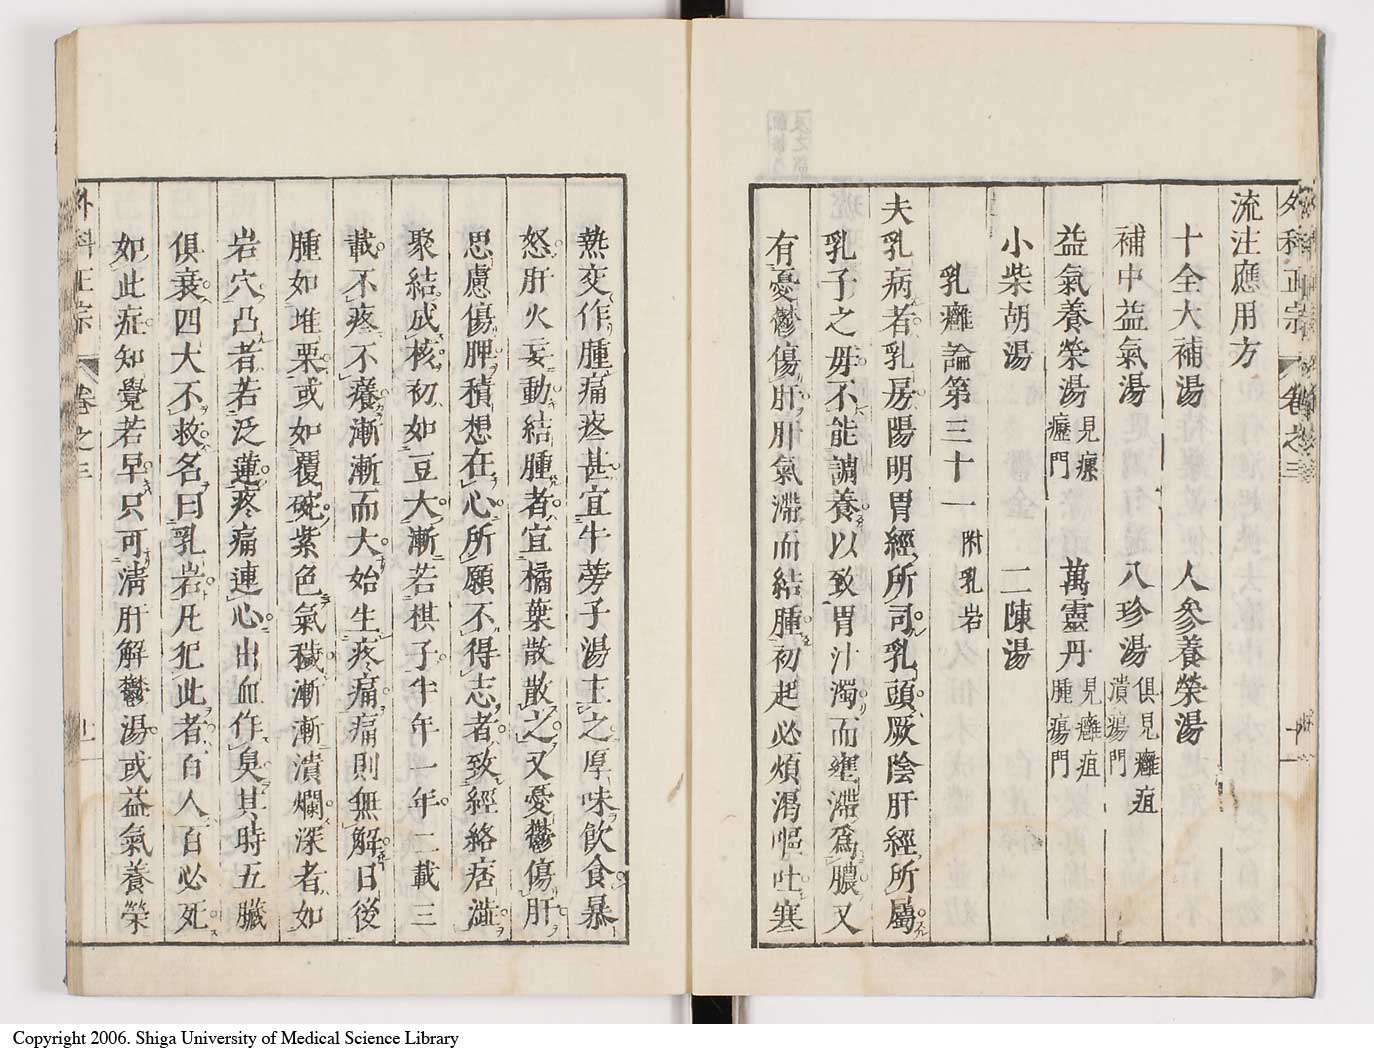 外科正宗 卷之三
流注應用方
十全大補湯 人參養榮湯
補中益氣湯 八珍湯 俱見癰疽潰瘍門
益氣養榮湯 見瘰癧門 萬靈丹 見癰疽腫瘍門
小柴胡湯 二陳湯
乳癰論第三十一 附乳岩
夫乳病者乳房陽明胃經所司乳頭厥陰肝經所屬
乳子之母不能調養以致胃汁濁而壅滯爲膿又
有憂鬱傷肝肝氣滯而結腫初起必煩渴嘔吐寒
熱交作腫痛疼甚宜牛蒡子湯主之厚味飲食暴
怒肝火妄動結腫者宜橘葉散散之又憂鬱傷肝
思慮傷脾積想在心所願不得志者致經絡痞澁
聚結成核初如豆大漸若棋子半年一年二載三
載不疼不癢漸漸而大始生疼痛痛則無解日後
腫如堆栗或如覆碗紫色氣穢漸漸潰爛深者如
岩穴凸者若泛蓮疼痛連心出血作臭其時五臟
俱衰四大不救名曰乳岩凡犯此者百人百必死
如此症知覺若早只可清肝解鬱湯或益氣養榮
外科正宗 卷之三
Copyright 2006. Shiga University of Medical Science Library